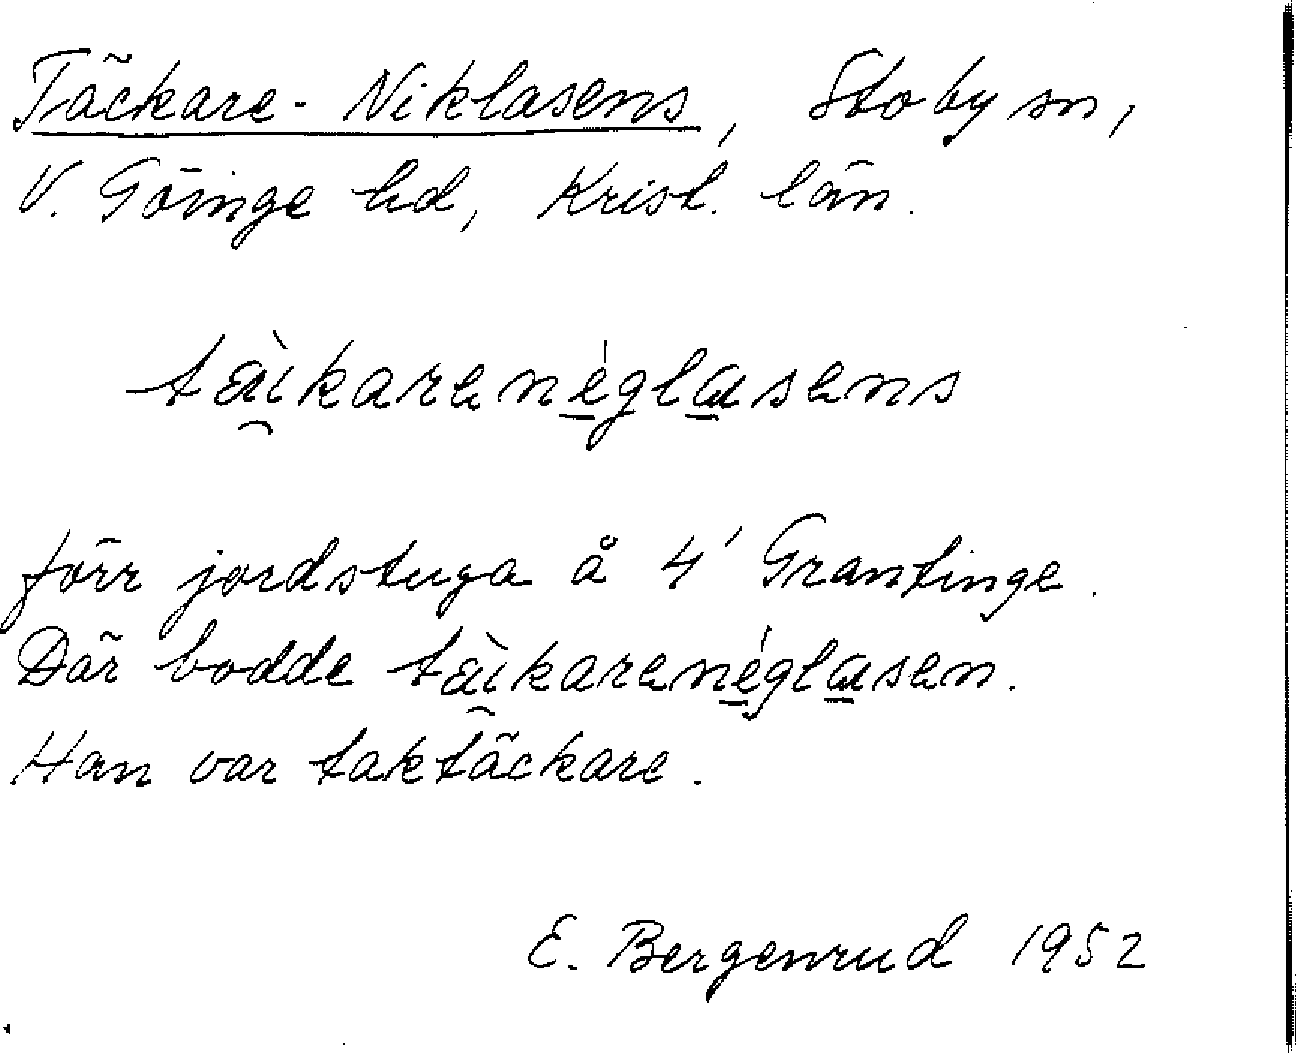 Täckare-Niklasens, Stoby sn,
V. Göinge hd, Krist. län.
tæ̀i̯karenéglasens
förr jordstuga å 4' Grantinge.
Där bodde tæ̀i̯karenéglasen.
Han var taktäckare.
E. Bergenrud 1952